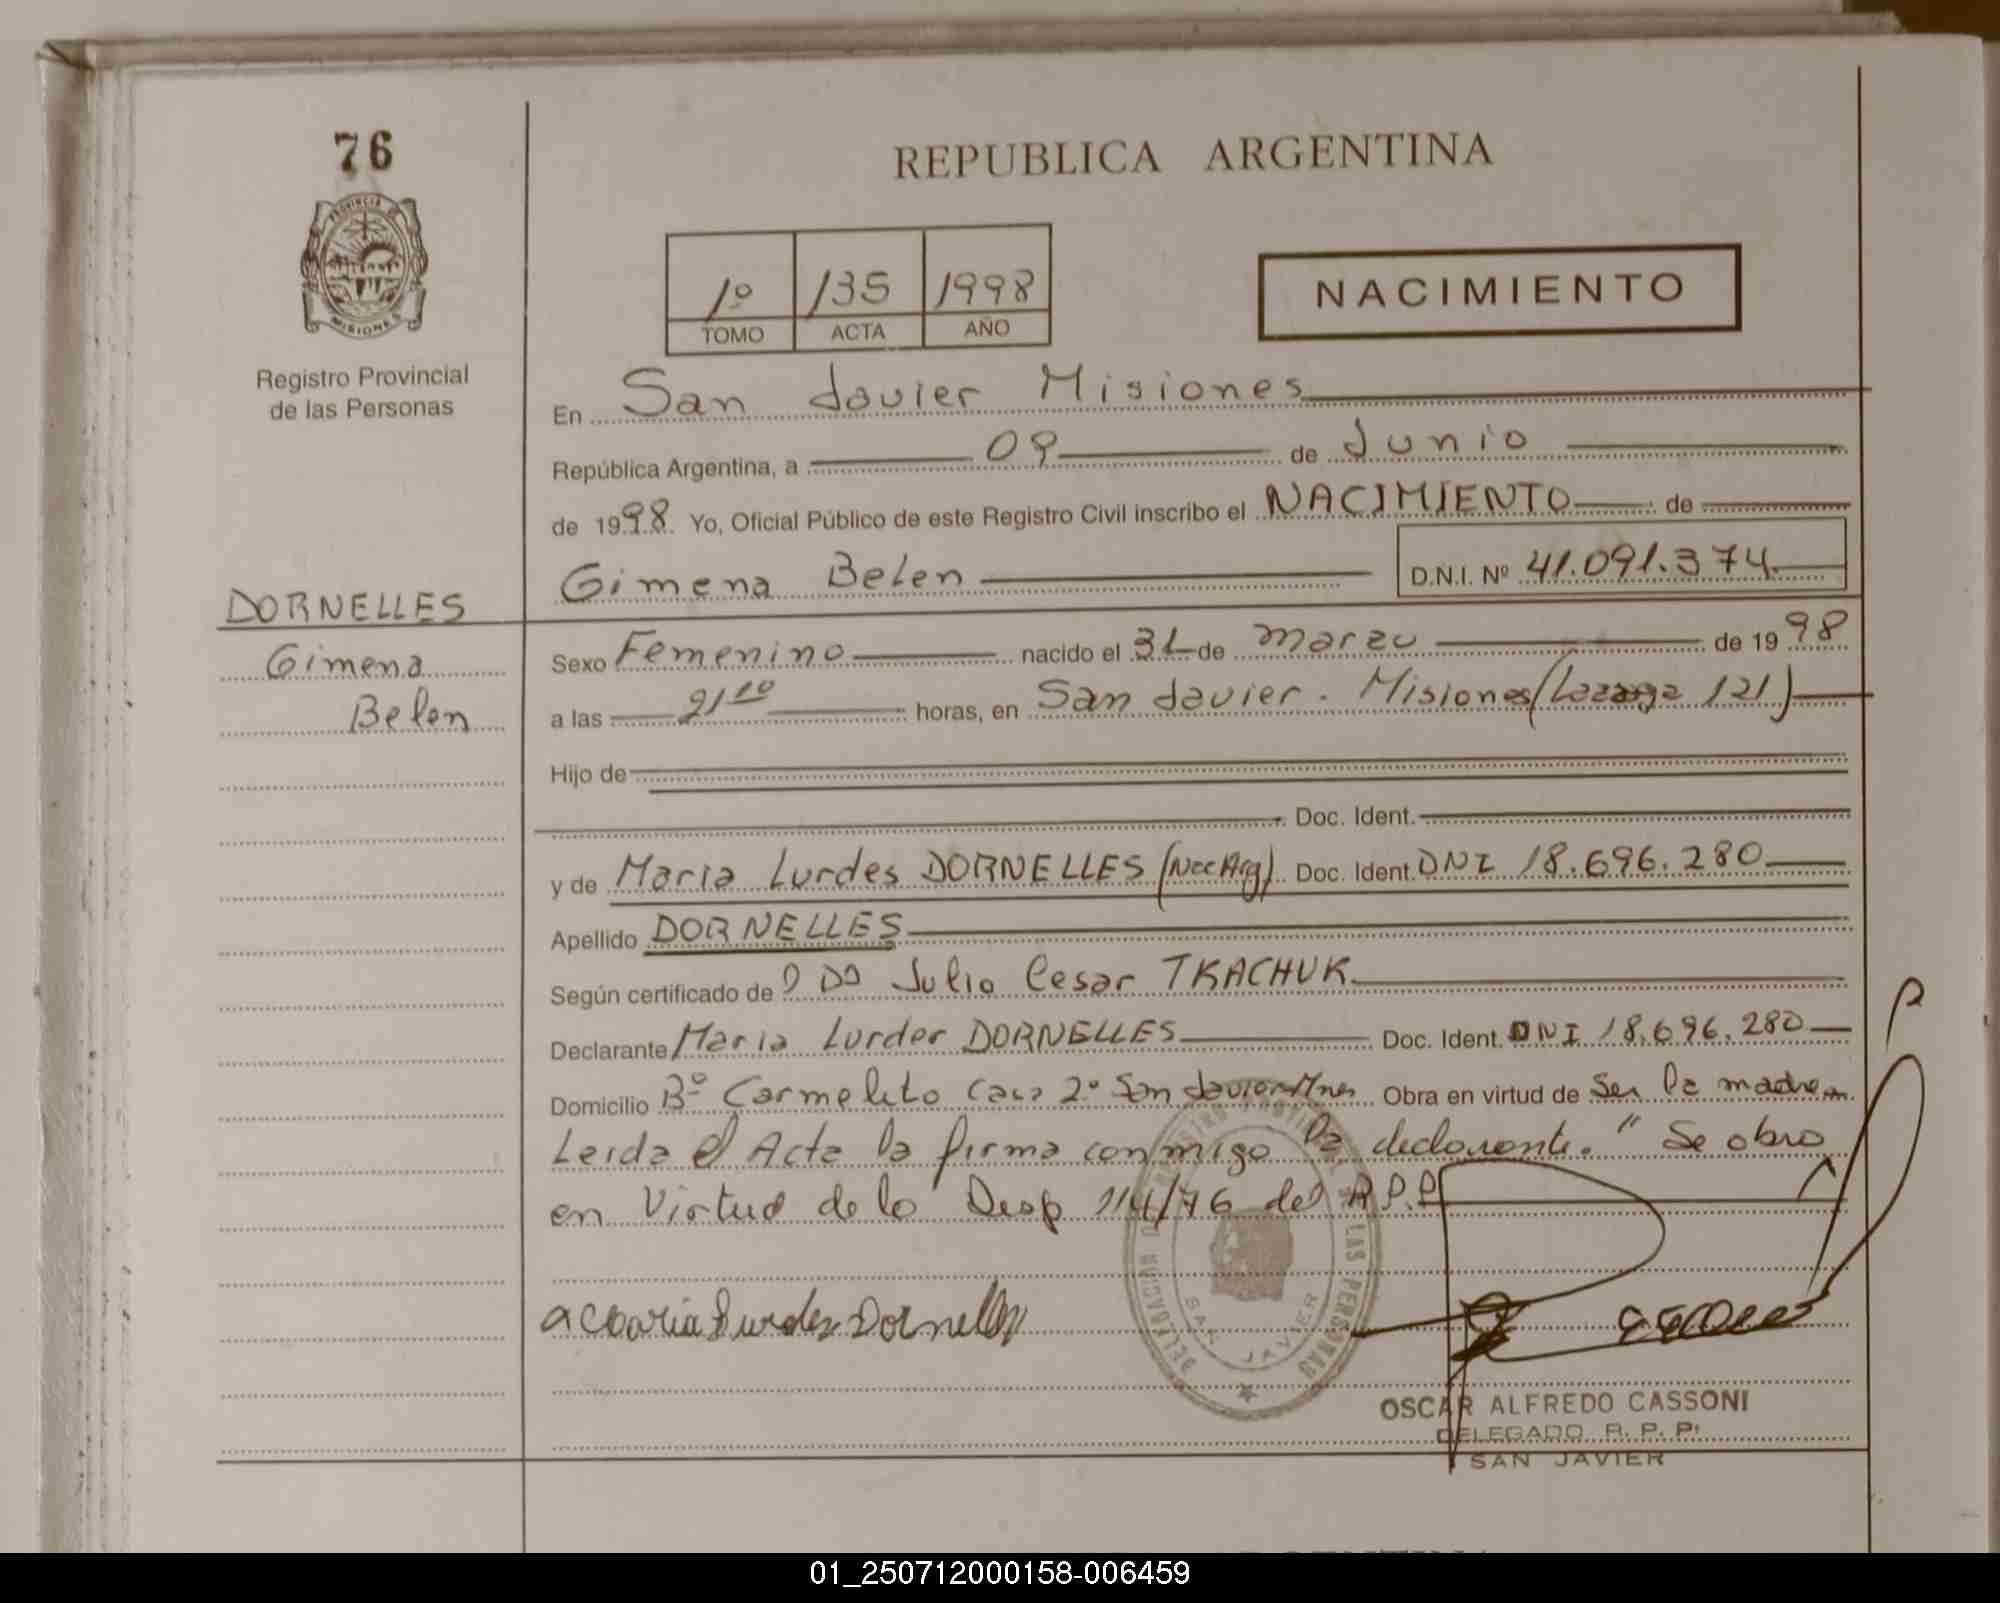 76
REPUBLICA ARGENTINA
PROVINCIA DE
MISIONES
1º 135 1998
TOMO ACTA AÑO
NACIMIENTO
Registro Provincial
de las Personas
En San Javier Misiones
República Argentina, a 09 de Junio
de 1998. Yo, Oficial Público de este Registro Civil inscribo el NACIMIENTO de
Gimena Belen D.N.I. Nº 41.091.374
DORNELLES
Gimena
Belen
Sexo Femenino nacido el 31 de marzo de 1998
a las 21 10 horas, en San Javier. Misiones (121)
Hijo de
Doc. Ident.
y de Maria Lurdes DORNELLES (Nac Arg) Doc. Ident. DNI 18.696.280
Apellido DORNELLES
Según certificado de Julio Cesar TKACHUK
Declarante Maria Lurdes DORNELLES Doc. Ident. DNI 18.696.280
Domicilio Bº Carmelito Casa 2º San Javier Mnes Obra en virtud de Ser la madre
Leida el Acta la firma conmigo la declarante. " Se obro
en Virtud de lo Desp 114/76 del R.P.P
DELEGACION DE LAS PERSONAS
SAN JAVIER
OSCAR ALFREDO CASSONI
DELEGADO R. P. P.
SAN JAVIER
01_250712000158-006459